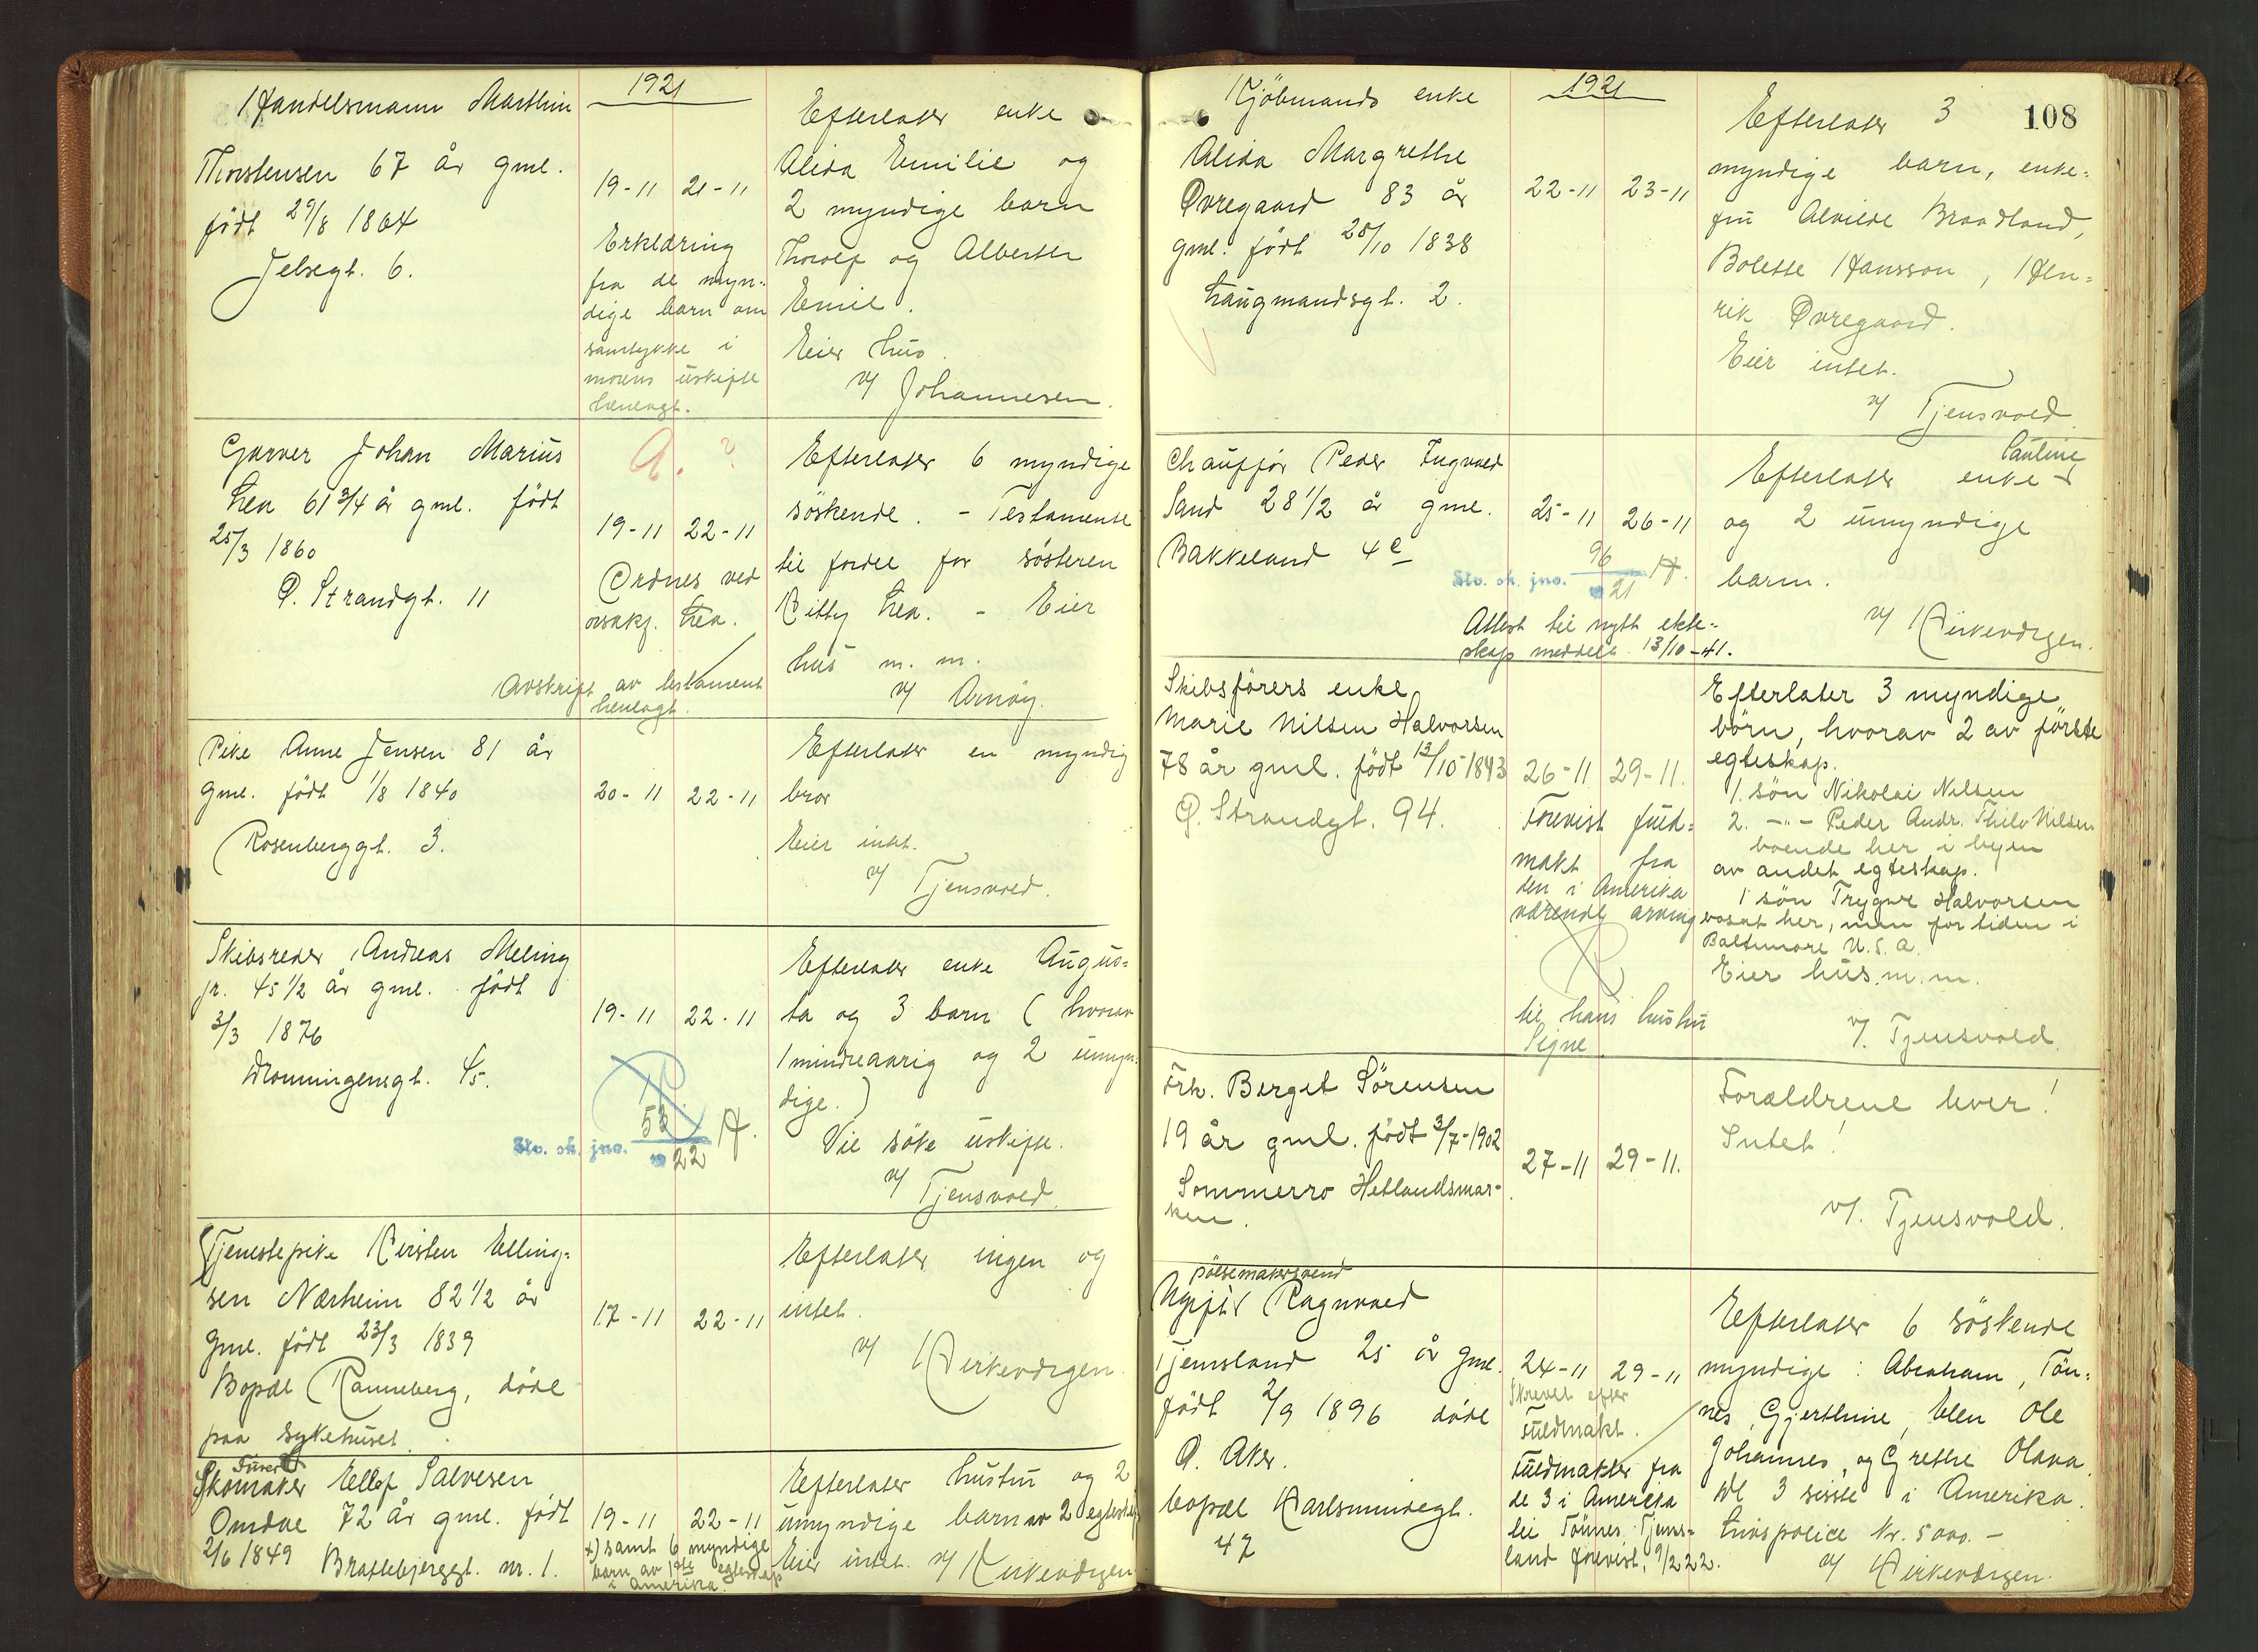 1921
Handelsmann Marthin
Thorstensen 67 år gml.
född 29/8 1864
Jelsegt. 6.
19-11 21-11
Erklæring
fra de myn-
dige barn om
samtykke i
morens uskifte
henlagt.
Efterlater enke
Alida Emilie og
2 myndige barn
Thorolf og Alberth
Emil.
Eier hus.
v/ Johannesen.
Garver Johan Marius
Lea 61 3/4 år gml. född
25/3 1860
Ø. Strandgt. 11
19-11 22-11
Ordnes ved
orsakf. Lea.
Avskrift av testament
henlagt.
Efterlater 6 myndige
söskende. - Testamente
til fordel for sösteren
Kitty Lea. - Eier
hus m. m.
v/ Arnöy.
Pike Anne Jensen 81 år
gml. född 1/8 1840
Rosenberggt. 3.
20-11 22-11
Efterlater en myndig
bror
Eier intet.
v/ Tjensvold.
Skibsreder Andreas Meling
jr. 45 1/2 år gml. född
3/3 1876
Wonningensgt. 45.
19-11 22-11
Stv. sk. jno. 53/22 A.
Efterlater enke Augus-
ta og 3 barn (hvorav
1 mindreaarig og 2 umyn-
dige.)
Vil söke uskifte.
v/ Tjensvold.
Tjenestepike Kirsten Elling-
sen Nærheim 82 1/2 år
gml. född 23/3 1839
Bopæl Ranneberg, döde
paa sykehuset.
17-11 22-11
Efterlater ingen og
intet.
v/ Kirkevärgen.
Skomaker Ellef Salvesen
Omdal 72 år gml. född
2/6 1849 Brattebjerggt. nr. 1.
19-11 22-11
+) samt 6 myndige
barn av 1ste egteskap
i Amerika.
Efterlater hustru og 2
umyndige barn av 2 egteskap
Eier intet. v/ Kirkevärgen
1921
108
Kjöbmands enke
Alida Margrethe
Øvregaard 83 år
gml. född 28/10 1838
Laugmandsgt. 2.
22-11 23-11
Efterlater 3
myndige barn, enke-
fru Alvilde Braadland,
Bolette Hansson, Hen-
rik Øvregaard.
Eier intet.
v/ Tjensvold.
Chaufför Peder Ingvald
Sand 28 1/2 år gml.
Bakkeland 4e
25-11 26-11
Stv. sk. jno. 96/21 A.
Attest til nytt ekte-
skap meddelt 13/10-41.
Pauline
Efterlater enke
og 2 umyndige
barn.
v/ Kirkevärgen.
Skibsförers enke
Marie Nilsen Halvorsen
78 år gml. född 13/10-1843
Ø. Strandgt. 94.
26-11 29-11.
Forevist fuld-
makt fra
den i Amerika
værende arving
til hans hustru
Signe.
Efterlater 3 myndige
börn, hvorav 2 av förste
egteskap.
1. sön Nikolai Nilsen
2. -"- Peder Andr. Thilo Nilsen
boende her i byen
av andet egteskap.
1 sön Trygve Halvorsen
bosat her, men for tiden i
Baltimore U.S.A.
Eier hus m. m.
v/. Tjensvold.
Frk. Berget Sörensen
19 år gml. född 3/7-1902
Sommerro Hetlandsmar-
ken.
27-11 29-11.
Forældrene lever!
Intet!
v/. Tjensvold.
pölsemakersvend
Ugift Ragnvald
Tjemsland 25 år gml.
född 2/9 1896 döde
Ø. Aker.
bopæl Karlsmindegt.
47
24-11 29-11
Skrevet efter
Fuldmakt.
Fuldmakter fra
de 3 i Amerika
til Tönnes Tjems-
land forevist, 9/2 22.
Efterlater 6 söskende
myndige: Abraham, Tön-
nes, Gjerthine, Elen Ole
Johannes, og Grethe Olava.
de 3 sisste i Amerika.
Livspolice Kr. 5000.-
v/ Kirkevärgen.